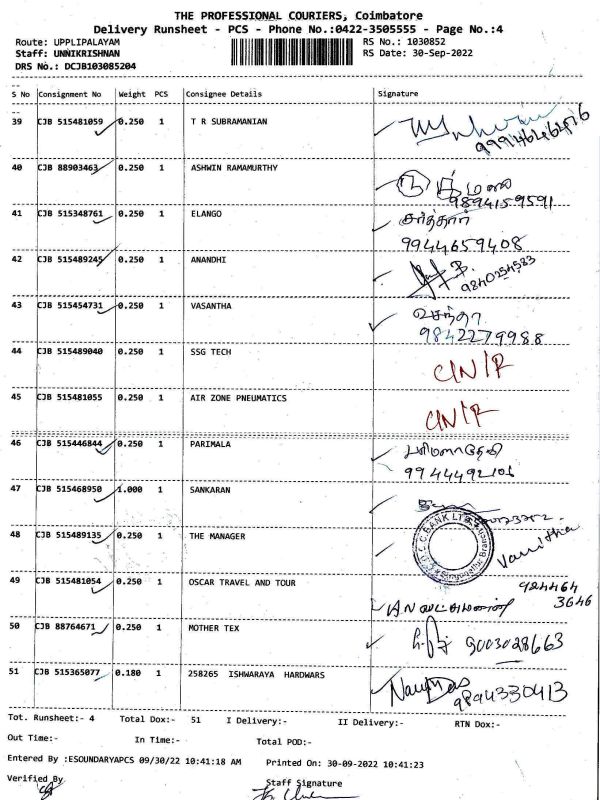 THE PROFESSIONAL COURIERS, Coimbatore
Delivery Runsheet - PCS - Phone No.:0422-3505555 - Page No.:4
Route: UPPLIPALAYAM RS No.: 1030852
Staff: UNNIKRISHNAN RS Date: 30-Sep-2022
DRS No.: DCJB103085204
S No Consignment No Weight PCS Consignee Details Signature
39 CJB 515481059 0.250 1 T R SUBRAMANIAN
40 CJB 88903463 0.250 1 ASHWIN RAMAMURTHY
9894159591
41 CJB 515348761 0.250 1 ELANGO
9944659408
42 CJB 515489245 0.250 1 ANANDHI
9840254583
43 CJB 515454731 0.250 1 VASANTHA
9842279988
44 CJB 515489040 0.250 1 SSG TECH
45 CJB 515481055 0.250 1 AIR ZONE PNEUMATICS
46 CJB 515446844 0.250 1 PARIMALA
47 CJB 515468950 1.000 1 SANKARAN
48 CJB 515489135 0.250 1 THE MANAGER
Vanitha
49 CJB 515481054 0.250 1 OSCAR TRAVEL AND TOUR
924464
3646
50 CJB 88764671 0.250 1 MOTHER TEX
9003028663
51 CJB 515365077 0.180 1 258265 ISHWARAYA HARDWARS
9894330413
Tot. Runsheet:- 4 Total Dox:- 51 I Delivery:- II Delivery:- RTN Dox:-
Out Time:- In Time:- Total POD:-
Entered By :ESOUNDARYAPCS 09/30/22 10:41:18 AM Printed On: 30-09-2022 10:41:23
Verified By Staff Signature